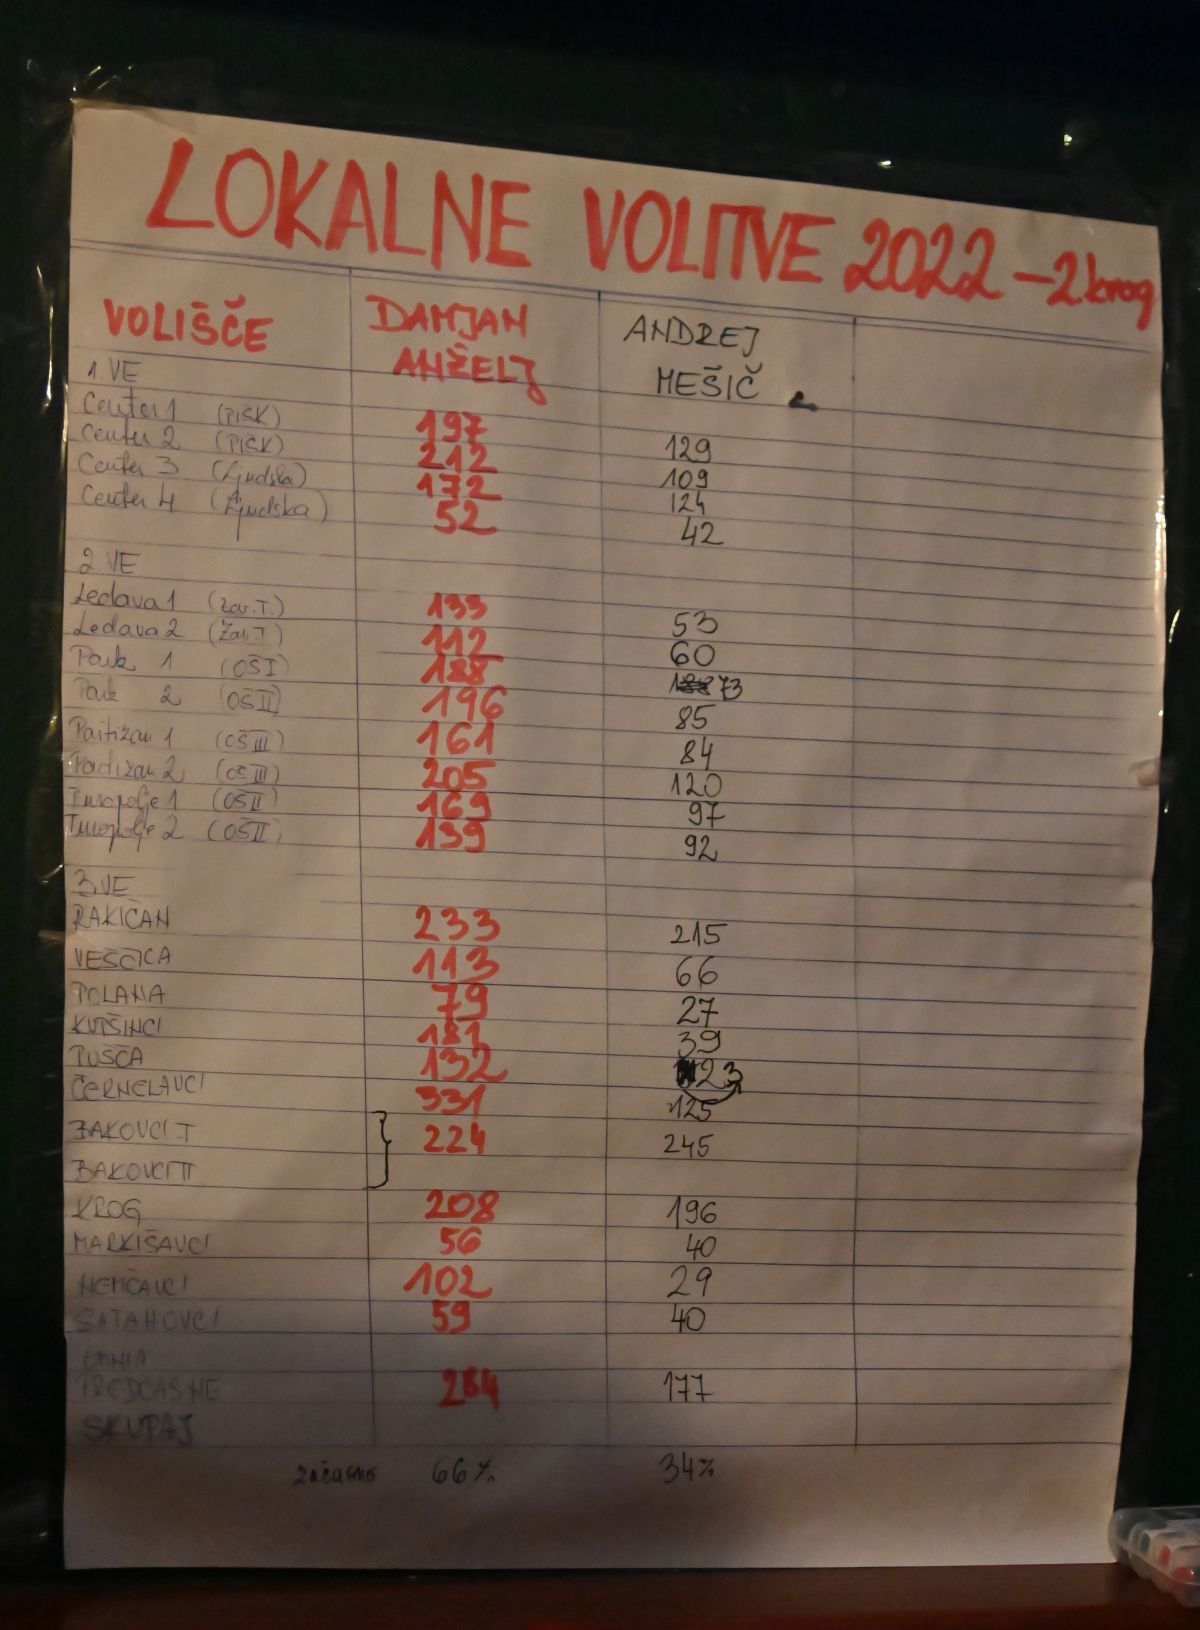 LOKALNE VOLITVE 2022 – 2. krog
VOLIŠČE DAMJAN ANŽELJ ANDREJ MEŠIČ
1. VE
Center 1 (PIŠK) 197 129
Center 2 (PIŠK) 212 109
Center 3 (Ljudska) 172 124
Center 4 (Ljudska) 52 42
2 VE
Ledava 1 (Zav. T.) 133 53
Ledava 2 (Zav. T) 112 60
Park 1 (OŠ I) 188 73
Park 2 (OŠ II) 196 85
Partizan 1 (OŠ III) 161 84
Partizan 2 (OŠ III) 205 120
Turopolje 1 (OŠ II) 169 97
Turopolje 2 (OŠ II) 139 92
3. VE
RAKIČAN 233 215
VEŠČICA 113 66
POLANA 79 27
KUPŠINCI 181 39
PUŠČA 132 23
ČERNELAVCI 331 125
BAKOVCI I 224 245
BAKOVCI II
KROG 208 196
MARKIŠAVCI 56 40
NEMČAVCI 102 29
SATAHOVCI 59 40
OMNIA
PREDČASNE 284 177
SKUPAJ
začasno 66% 34%